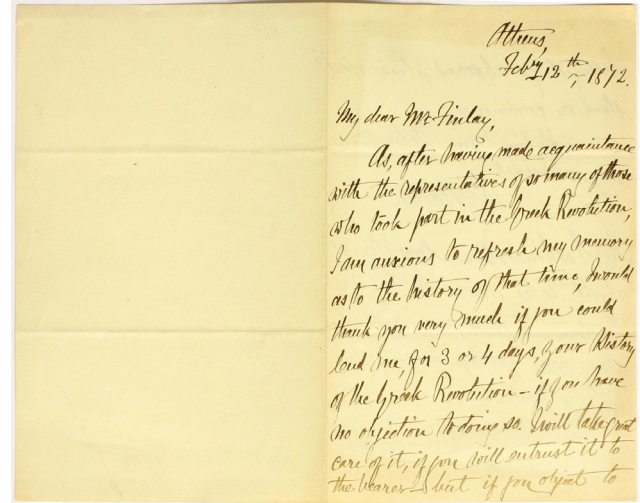 Athens,
Feby 12th, 1872.
My dear Mr Finlay,
As, after having made acquaintance
with the representatives of so many of those
who took part in the Greek Revolution,
I am anxious to refresh my memory
as to the history of that time, I would
thank you very much if you could
lend me, for 3 or 4 days, your History
of the Greek Revolution - if you have
no objection to doing so. I will take great
care of it, if you will entrust it to
the bearer - but if you object to